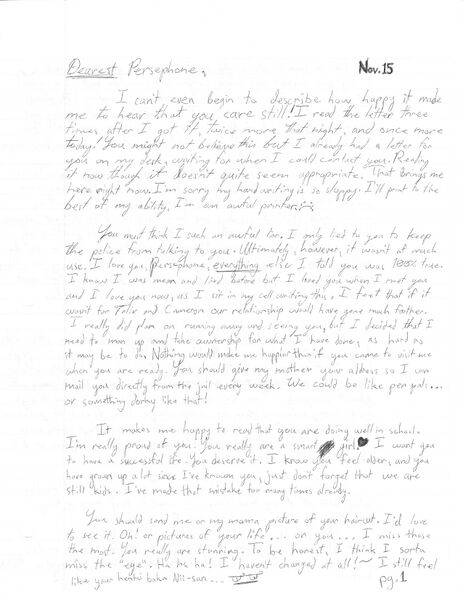 Dearest Persephone,
Nov. 15
I can't even begin to describe how happy it made
me to hear that you care still! I read the letter three
times after I got it, twice more that night, and once more
today! You might not believe this but I already had a letter for
you on my desk, waiting for when I could contact you. Reading
it now though it doesn't quite seem appropriate. That brings me
here right now. I'm sorry my handwriting is so sloppy. I'll print to the
best of my ability, I'm an awful printer
You must think I such an awful liar. I only lied to you to keep
the police from talking to you. Ultimately, however, it wasn't at much
use. I love you, Persephone, everything else I told you was 100% true.
I know I was mean and lied before but I loved you when I met you
and I love you now, as I sit in my cell writing this, I feel that if it
wasn't for and Cameron our relationship would have gone much farther.
I really did plan on running away and seeing you, but I decided that I
need to man up and take ownership for what I have done, as hard as
it may be to do. Nothing would make me happier than if you came to visit me
when you are ready. You should give my mother your address so I can
mail you directly from the jail every week. We could be like pen pals...
or something dorky like that!
It makes me happy to read that you are doing well in school.
I'm really proud of you. You really are a smart girl! I want you
to have a successful life. You deserve it. I know you feel older, and you
have grown up a lot since I've known you, just don't forget that we are
still kids. I've made that mistake far many times already.
You should send me or my mama picture of your haircut. I'd love
to see it. Oh! or pictures of your life... or you... I miss those
the most. You really are stunning. To be honest, I think I sorta
miss the "eye". Ha ha ha! I haven't changed at all!~ I still feel
like your hentai baka Nii-san...
pg. 1